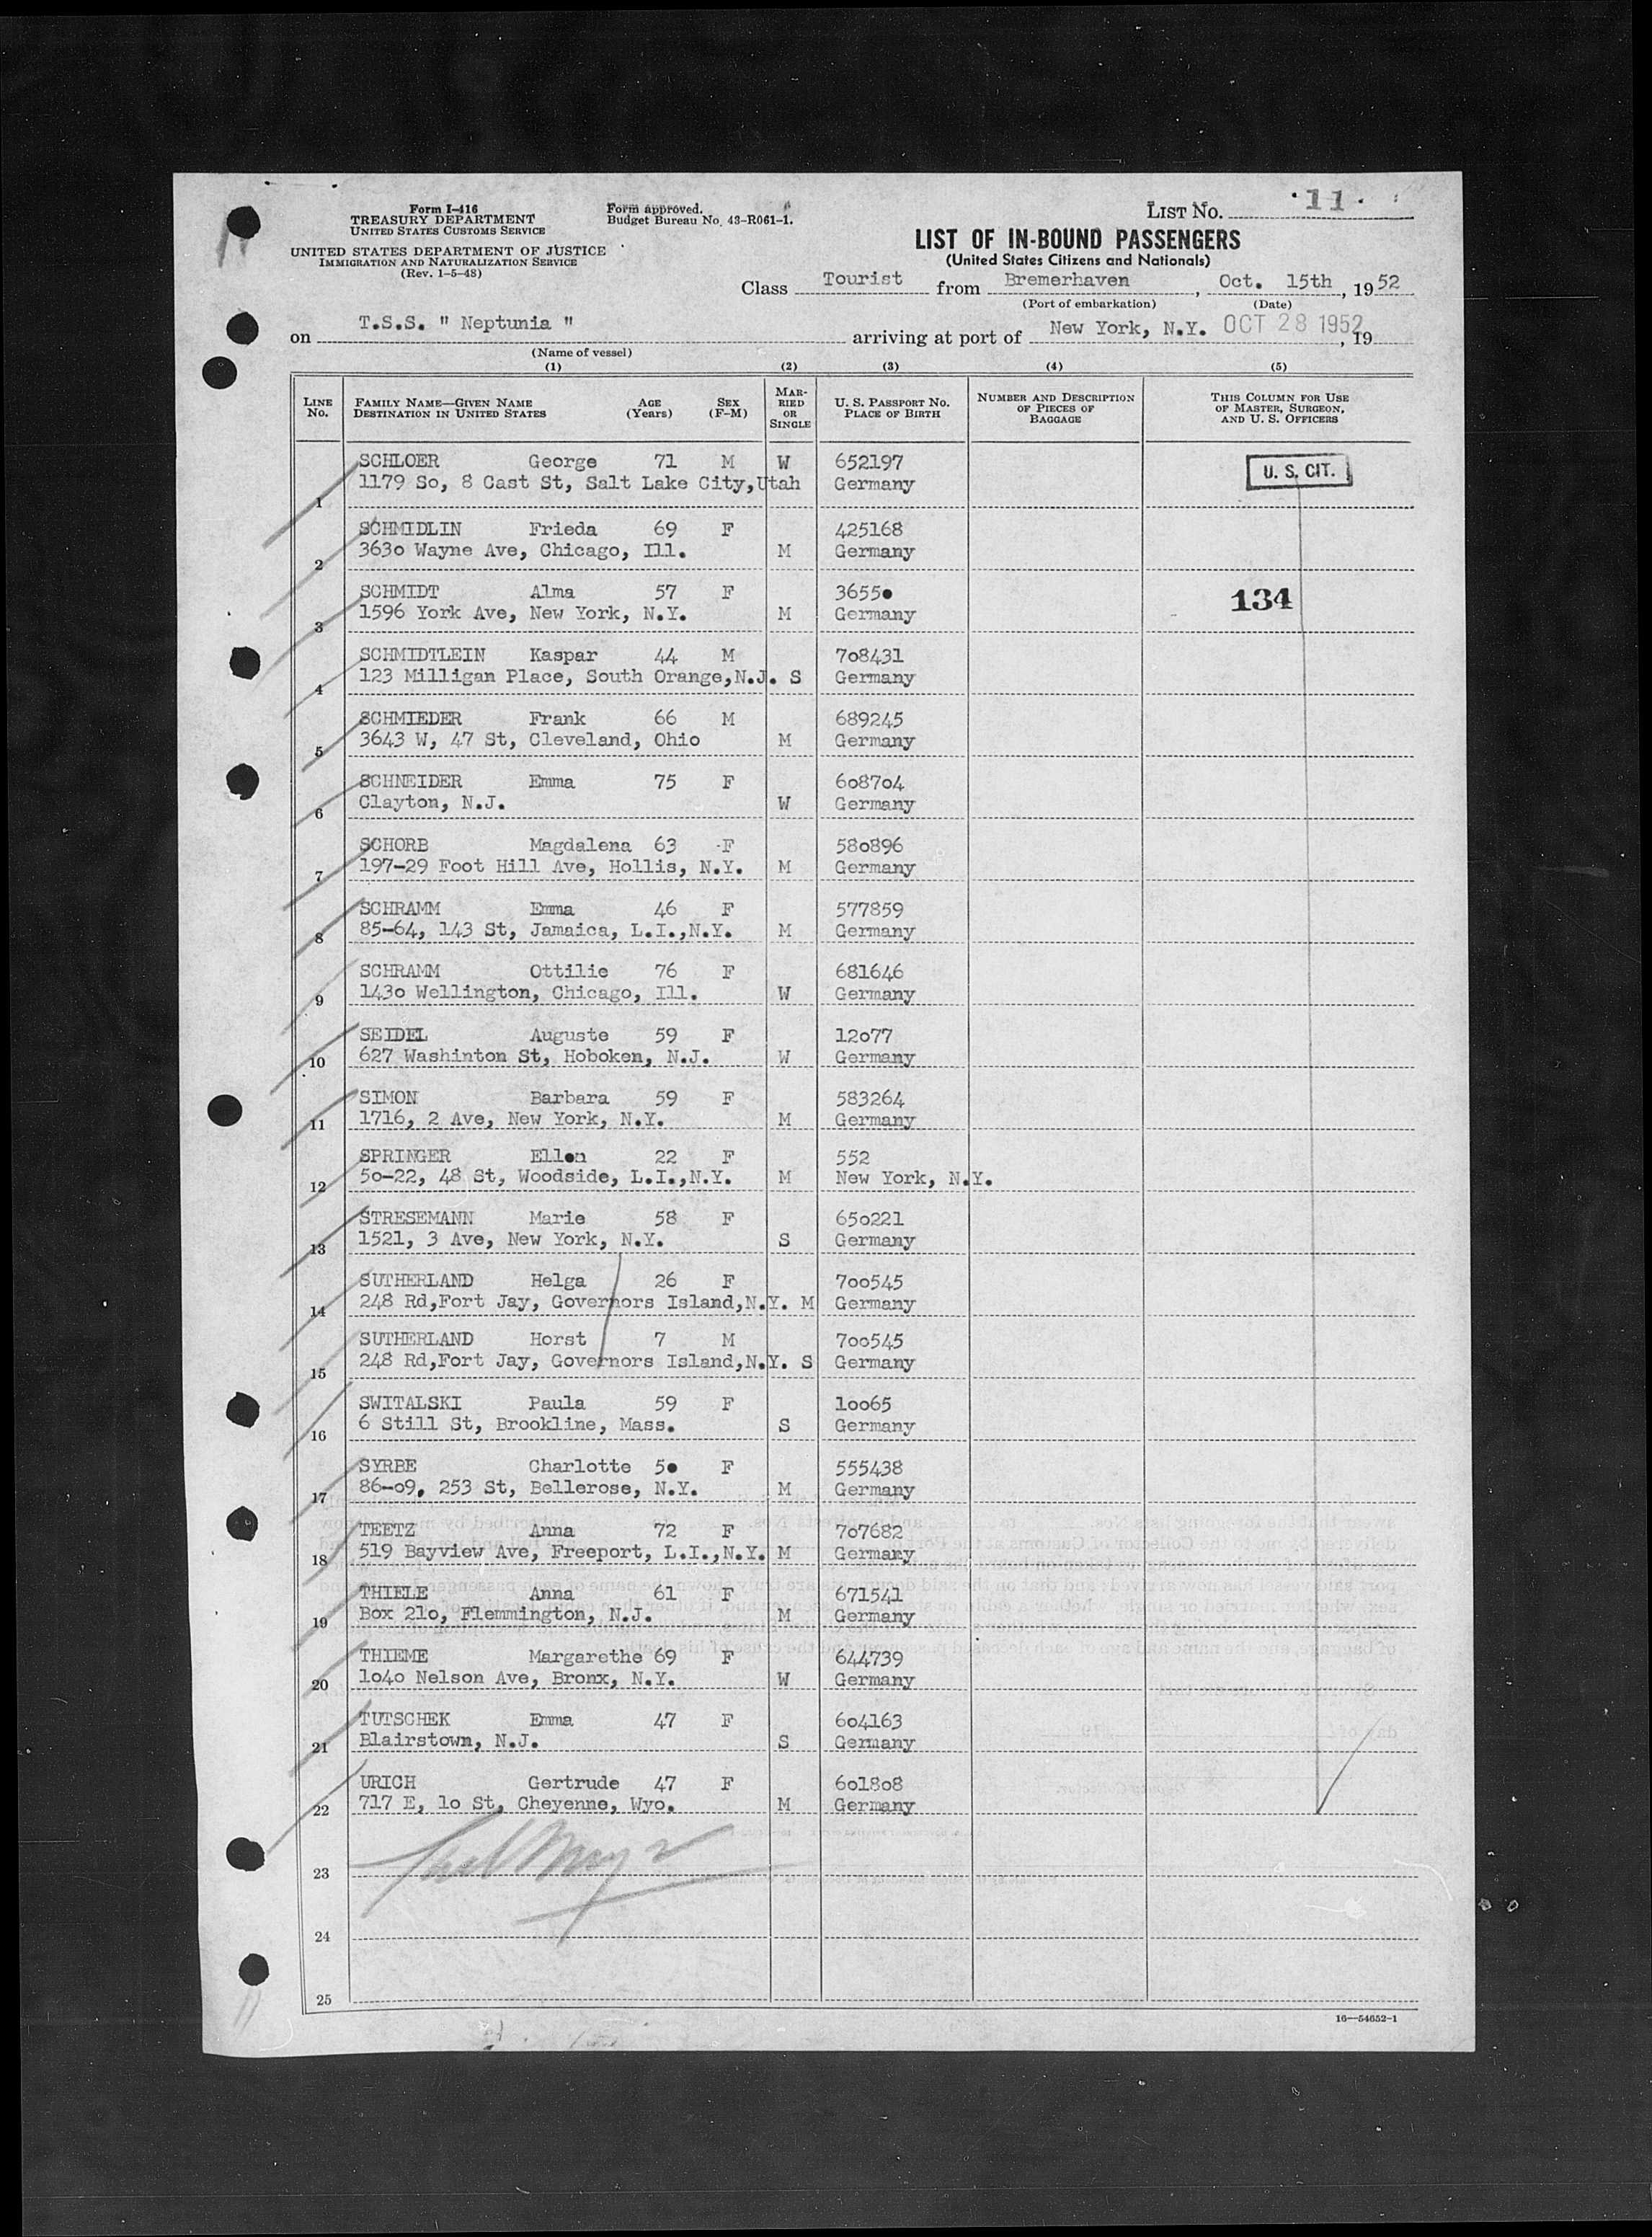 11
Form I-416
TREASURY DEPARTMENT
UNITED STATES CUSTOMS SERVICE
UNITED STATES DEPARTMENT OF JUSTICE
IMMIGRATION AND NATURALIZATION SERVICE
(Rev. 1-5-48)
Form approved.
Budget Bureau No. 43-R061-1.
LIST NO. 11
LIST OF IN-BOUND PASSENGERS
(United States Citizens and Nationals)
Class Tourist from Bremerhaven, Oct. 15th, 1952
(Port of embarkation) (Date)
on T.S.S. " Neptunia " arriving at port of New York, N.Y. OCT 28 1952, 19
(Name of vessel)
(1) (2) (3) (4) (5)
LINE NO. FAMILY NAME—GIVEN NAME DESTINATION IN UNITED STATES AGE (Years) SEX (F-M) MARRIED OR SINGLE U. S. PASSPORT NO. PLACE OF BIRTH NUMBER AND DESCRIPTION OF PIECES OF BAGGAGE THIS COLUMN FOR USE OF MASTER, SURGEON, AND U. S. OFFICERS
SCHLOER George 71 M W 652197 U. S. CIT.
1 1179 So, 8 Cast St, Salt Lake City,Utah Germany
SCHMIDLIN Frieda 69 F 425168
2 3630 Wayne Ave, Chicago, Ill. M Germany
SCHMIDT Alma 57 F 36550 134
3 1596 York Ave, New York, N.Y. M Germany
SCHMIDTLEIN Kaspar 44 M 708431
4 123 Milligan Place, South Orange,N.J. S Germany
SCHMIEDER Frank 66 M 689245
5 3643 W, 47 St, Cleveland, Ohio M Germany
SCHNEIDER Emma 75 F 608704
6 Clayton, N.J. W Germany
SCHORB Magdalena 63 F 580896
7 197-29 Foot Hill Ave, Hollis, N.Y. M Germany
SCHRAMM Emma 46 F 577859
8 85-64, 143 St, Jamaica, L.I.,N.Y. M Germany
SCHRAMM Ottilie 76 F 681646
9 1430 Wellington, Chicago, Ill. W Germany
SEIDEL Auguste 59 F 12077
10 627 Washinton St, Hoboken, N.J. W Germany
SIMON Barbara 59 F 583264
11 1716, 2 Ave, New York, N.Y. M Germany
SPRINGER Ellen 22 F 552
12 50-22, 48 St, Woodside, L.I.,N.Y. M New York, N.Y.
STRESEMANN Marie 58 F 650221
13 1521, 3 Ave, New York, N.Y. S Germany
SUTHERLAND Helga 26 F 700545
14 248 Rd,Fort Jay, Governors Island,N.Y. M Germany
SUTHERLAND Horst 7 M 700545
15 248 Rd,Fort Jay, Governors Island,N.Y. S Germany
SWITALSKI Paula 59 F 10065
16 6 Still St, Brookline, Mass. S Germany
SYRBE Charlotte 50 F 555438
17 86-09, 253 St, Bellerose, N.Y. M Germany
TEETZ Anna 72 F 707682
18 519 Bayview Ave, Freeport, L.I.,N.Y. M Germany
THIELE Anna 61 F 671541
19 Box 210, Flemmington, N.J. M Germany
THIEME Margarethe 69 F 644739
20 1040 Nelson Ave, Bronx, N.Y. W Germany
TUTSCHEK Emma 47 F 604163
21 Blairstown, N.J. S Germany
URICH Gertrude 47 F 601808
22 717 E, 10 St, Cheyenne, Wyo. M Germany
23
24
25
16—54652-1
11